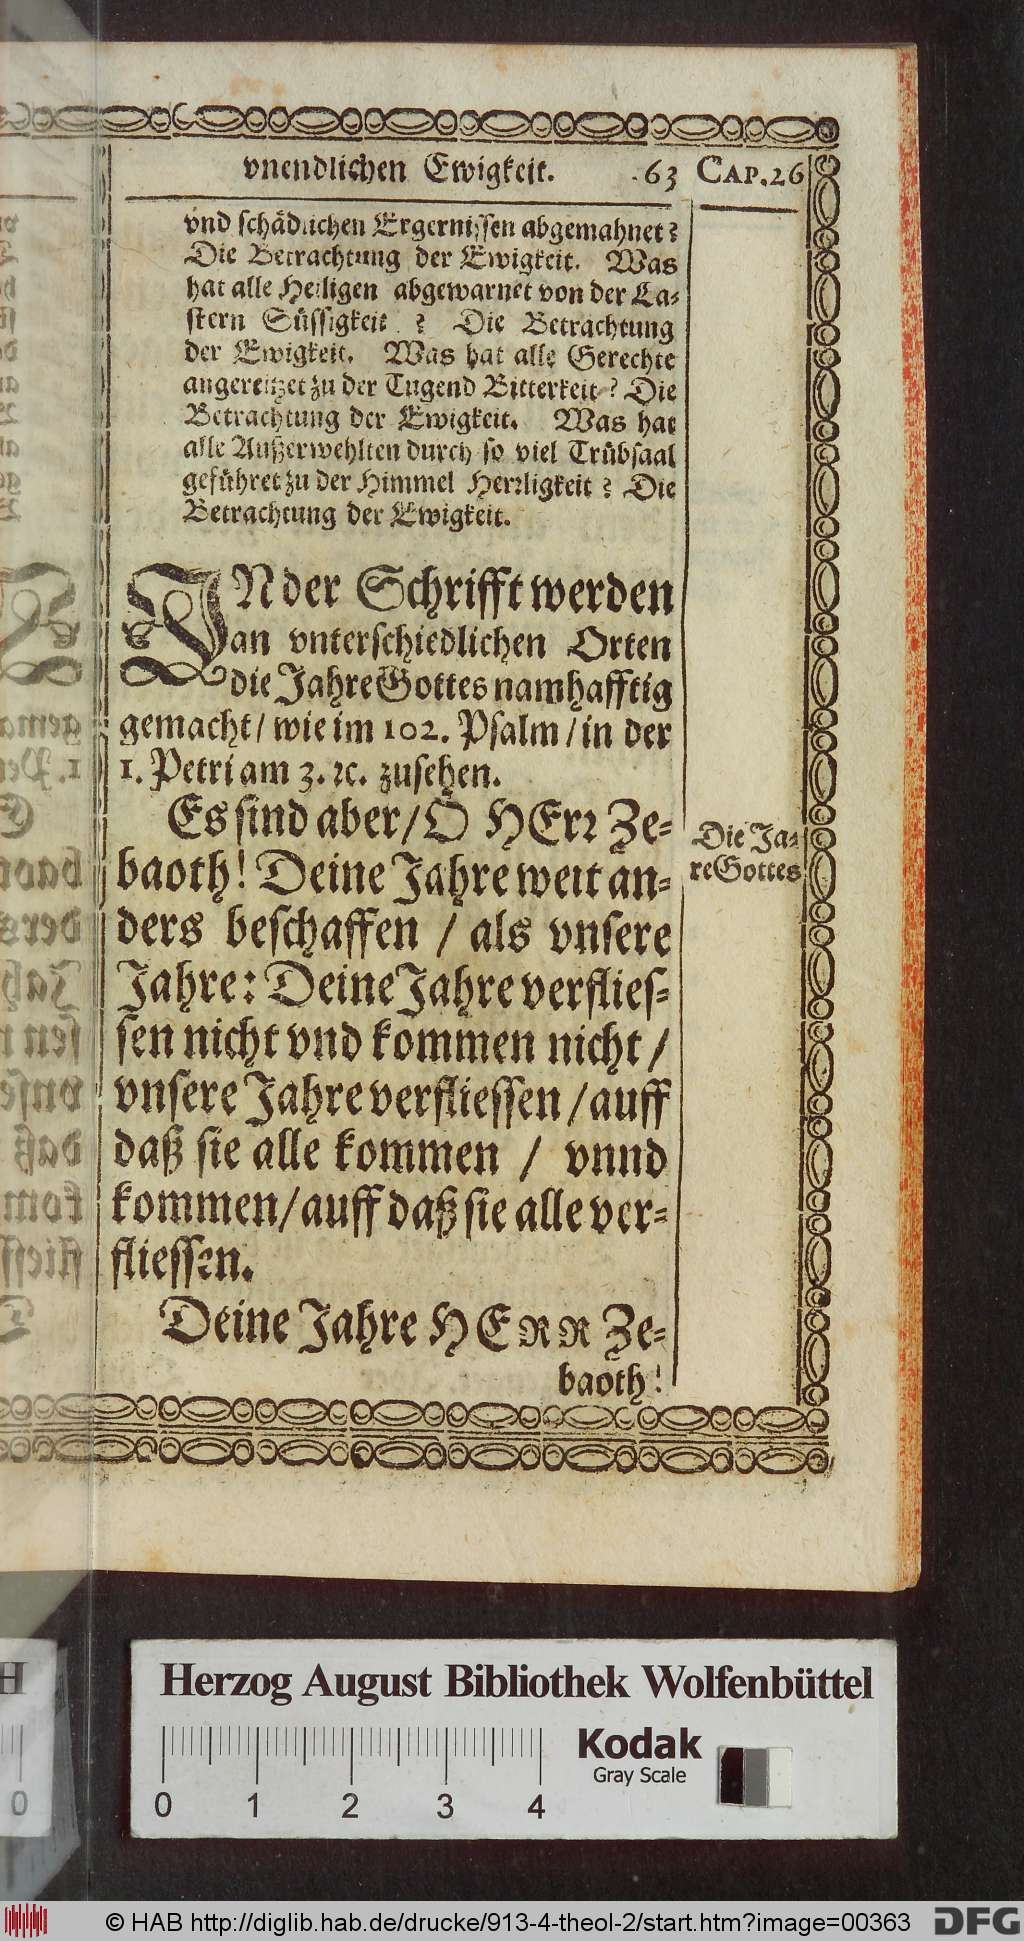 vnendlichen Ewigkeit. 63 CAP.26
vnd schädlichen Ergernissen abgemahnet?
Die Betrachtung der Ewigkeit. Was
hat alle Heiligen abgewarnet von der La-
stern Süssigkeit ? Die Betrachtung
der Ewigkeit. Was hat alle Gerechte
angereitzet zu der Tugend Bitterkeit? Die
Betrachtung der Ewigkeit. Was hat
alle Außerwehlten durch so viel Trübsaal
geführet zu der Himmel Herrligkeit? Die
Betrachtung der Ewigkeit.
IN der Schrifft werden
an vnterschiedlichen Orten
die Jahre Gottes namhafftig
gemacht/ wie im 102. Psalm / in der
1. Petri am 3. ꝛc. zusehen.
Es sind aber/ O HErꝛ Ze-
baoth! Deine Jahre weit an-
ders beschaffen / als vnsere
Jahre: Deine Jahre verflies-
sen nicht vnd kommen nicht /
vnsere Jahre verfliessen / auff
daß sie alle kommen / vnnd
kommen/ auff daß sie alle ver-
fliessen.
Deine Jahre HERR Ze-
baoth!
Die Ja-
re Gottes
Herzog August Bibliothek Wolfenbüttel
0 1 2 3 4
Kodak
Gray Scale
H
0
© HAB http://diglib.hab.de/drucke/913-4-theol-2/start.htm?image=00363
DFG